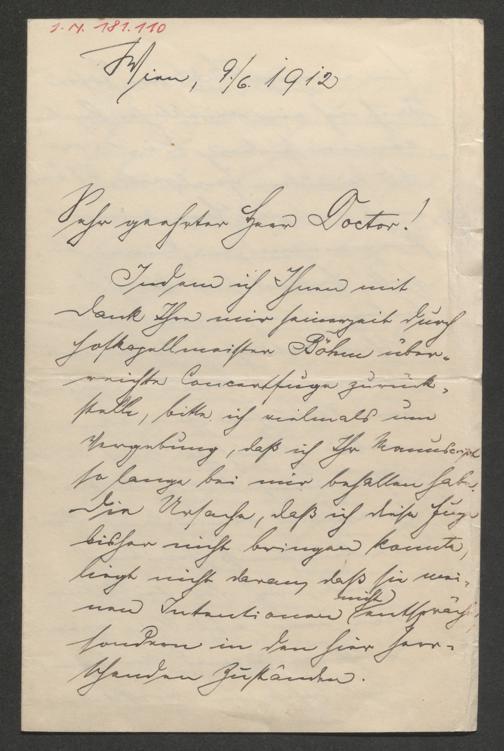 I. N. 181.110
Wien, 9./6. 1912
Sehr geehrter Herr Doctor!
Indem ich Ihnen mit
Dank Ihre mir seinerzeit durch
Hofkapellmeister Böhm über-
reichte Concertfuge zurück-
stelle, bitte ich vielmals um
Vergebung, daß ich Ihr Manuscript
so lange bei mir behalten habe.
Die Ursache, daß ich diese Fuge
bisher nicht bringen konnte,
liegt nicht daran, daß sie mei-
nen Intentionen nicht entspräch,
sondern in den hier herr-
schenden Zuständen.